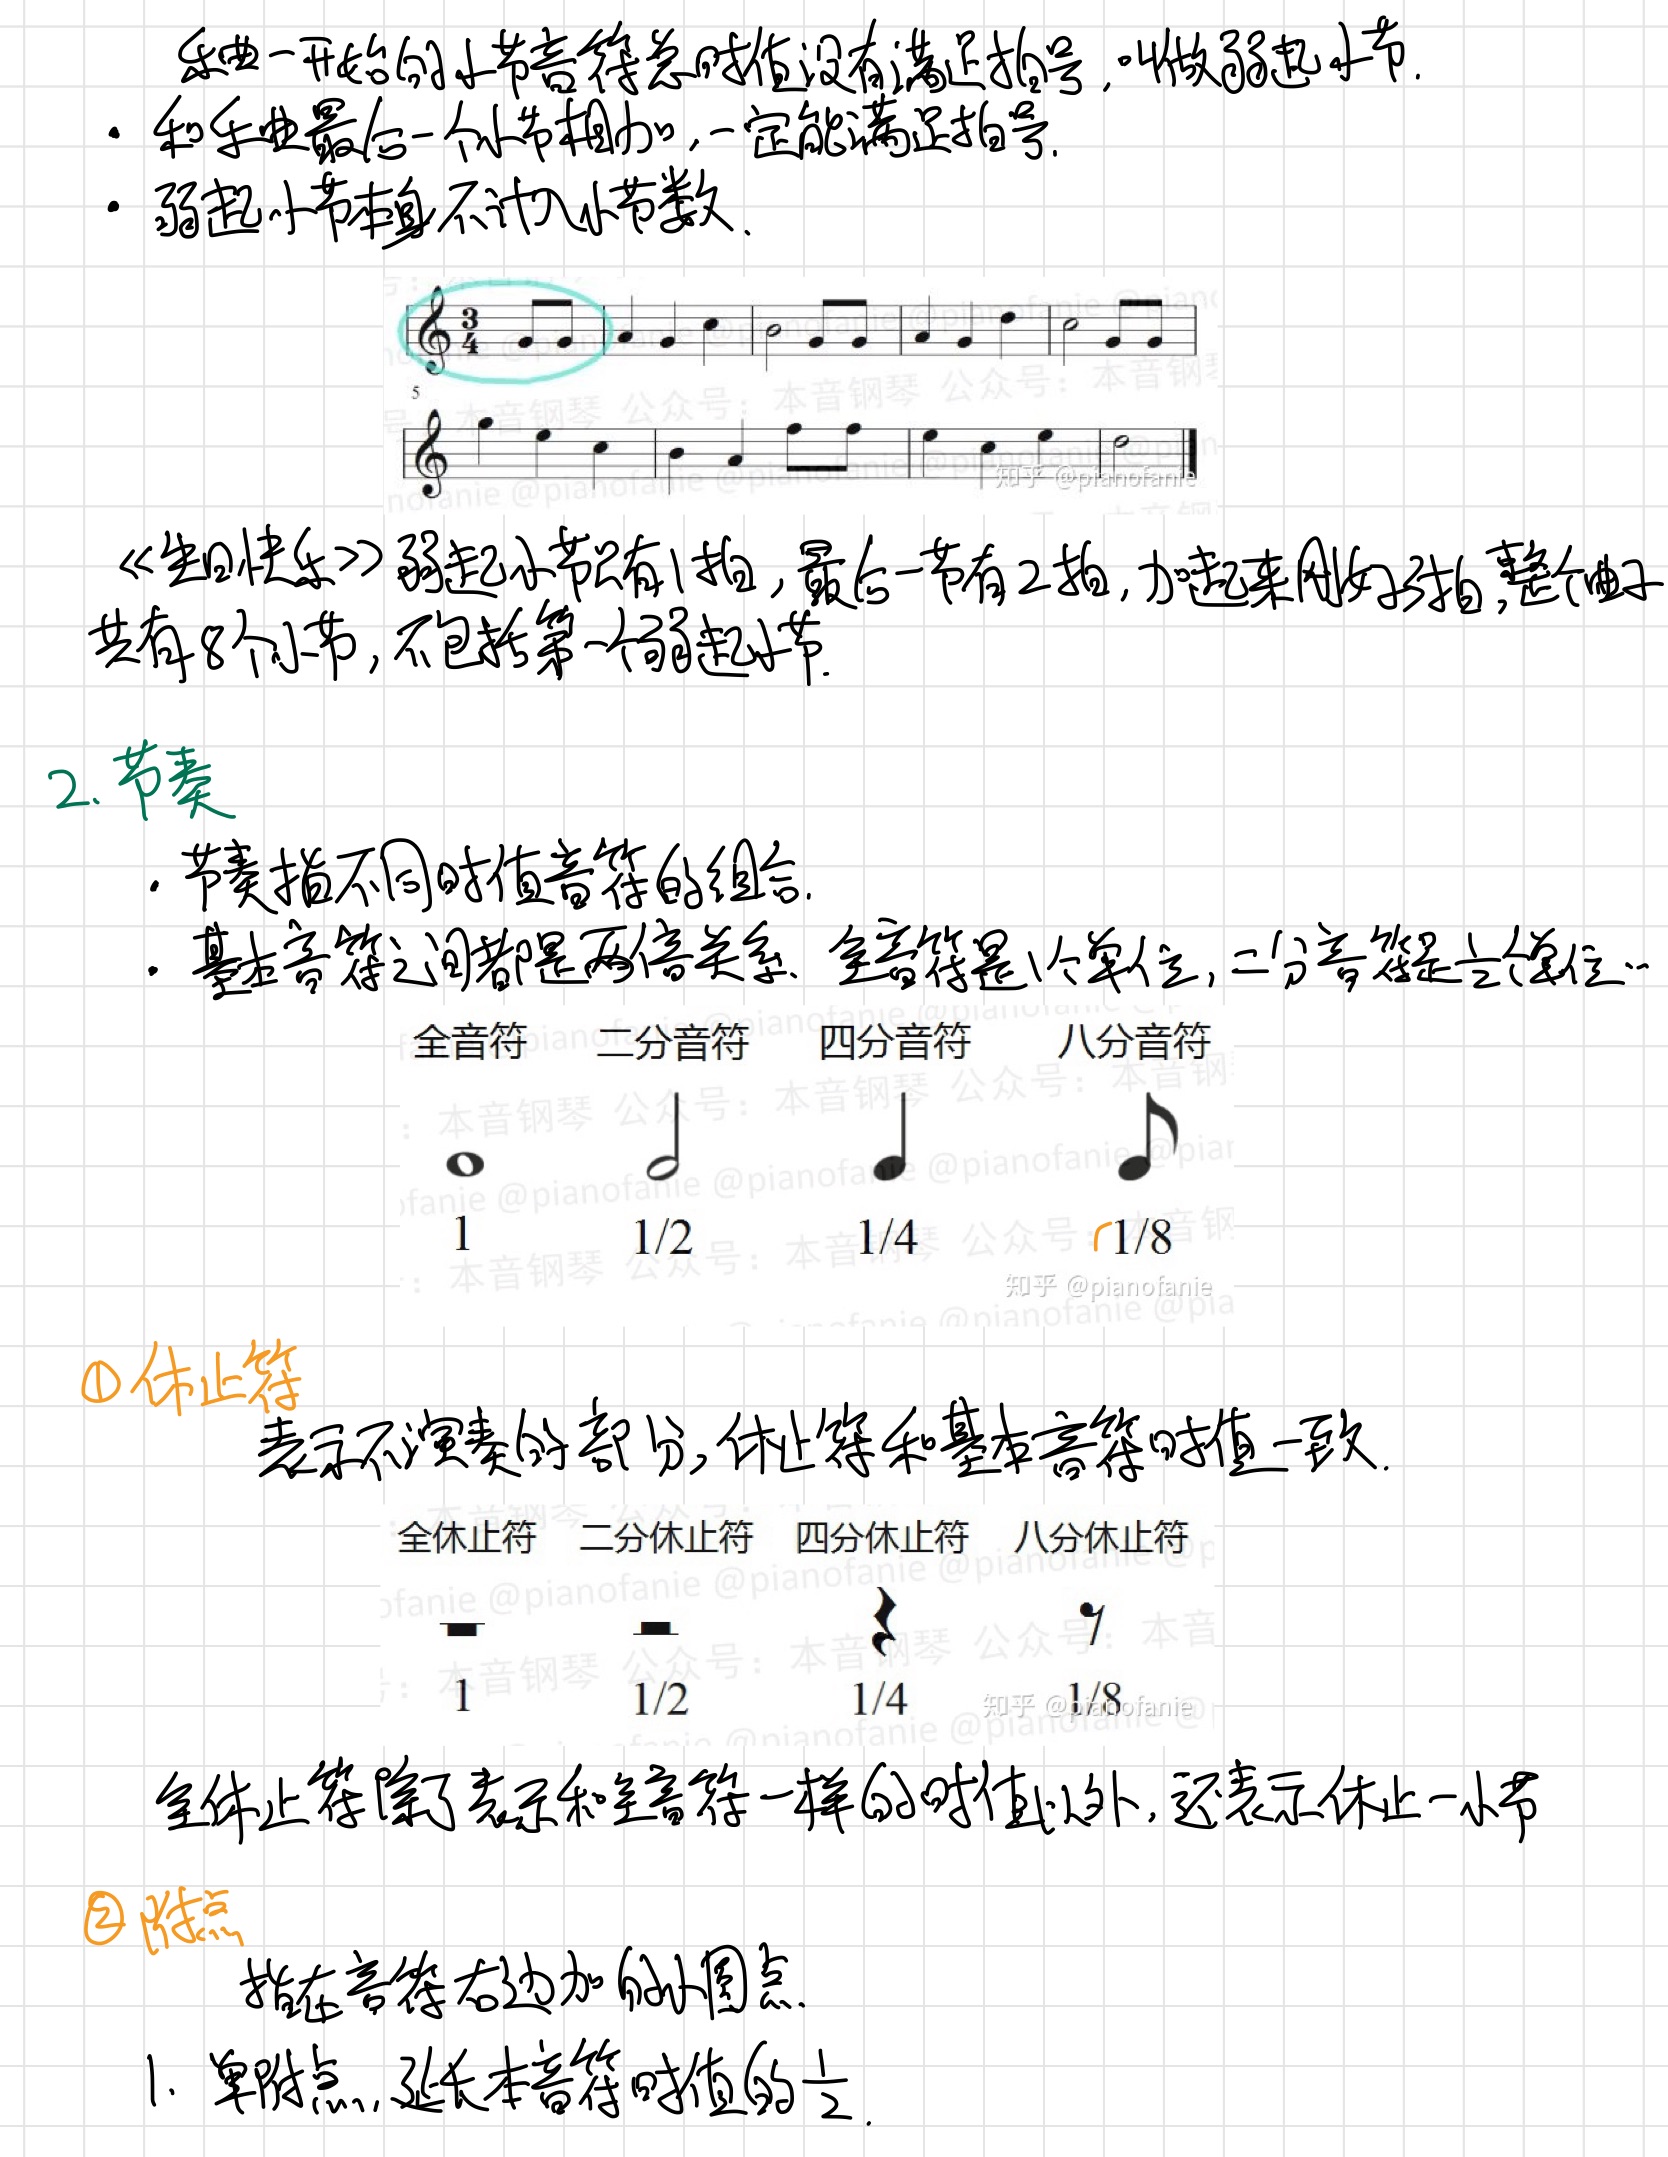 乐曲一开始的小节音符总时值没有满足拍号,叫做弱起小节.
· 和乐曲最后一个小节相加,一定能满足拍号.
· 弱起小节本身不计入小节数.
3
4
5
本音钢琴 公众号：本音钢琴 公众号：本音钢琴
知乎 @pianofanie
《生日快乐》弱起小节只有1拍,最后一节有2拍,加起来刚好3拍,整个曲子
共有8个小节,不包括第一个弱起小节.
2.节奏
· 节奏指不同时值音符的组合.
· 基本音符之间都是两倍关系、全音符是1个单位,二分音符是½个单位…
全音符 二分音符 四分音符 八分音符
1 1/2 1/4 1/8
知乎 @pianofanie
①休止符
表示不演奏的部分,休止符和基本音符时值一致.
全休止符 二分休止符 四分休止符 八分休止符
1 1/2 1/4 1/8
知乎 @pianofanie
全休止符除了表示和全音符一样的时值以外,还表示休止一小节
②附点
指在音符右边加的小圆点.
1. 单附点,延长本音符时值的½.